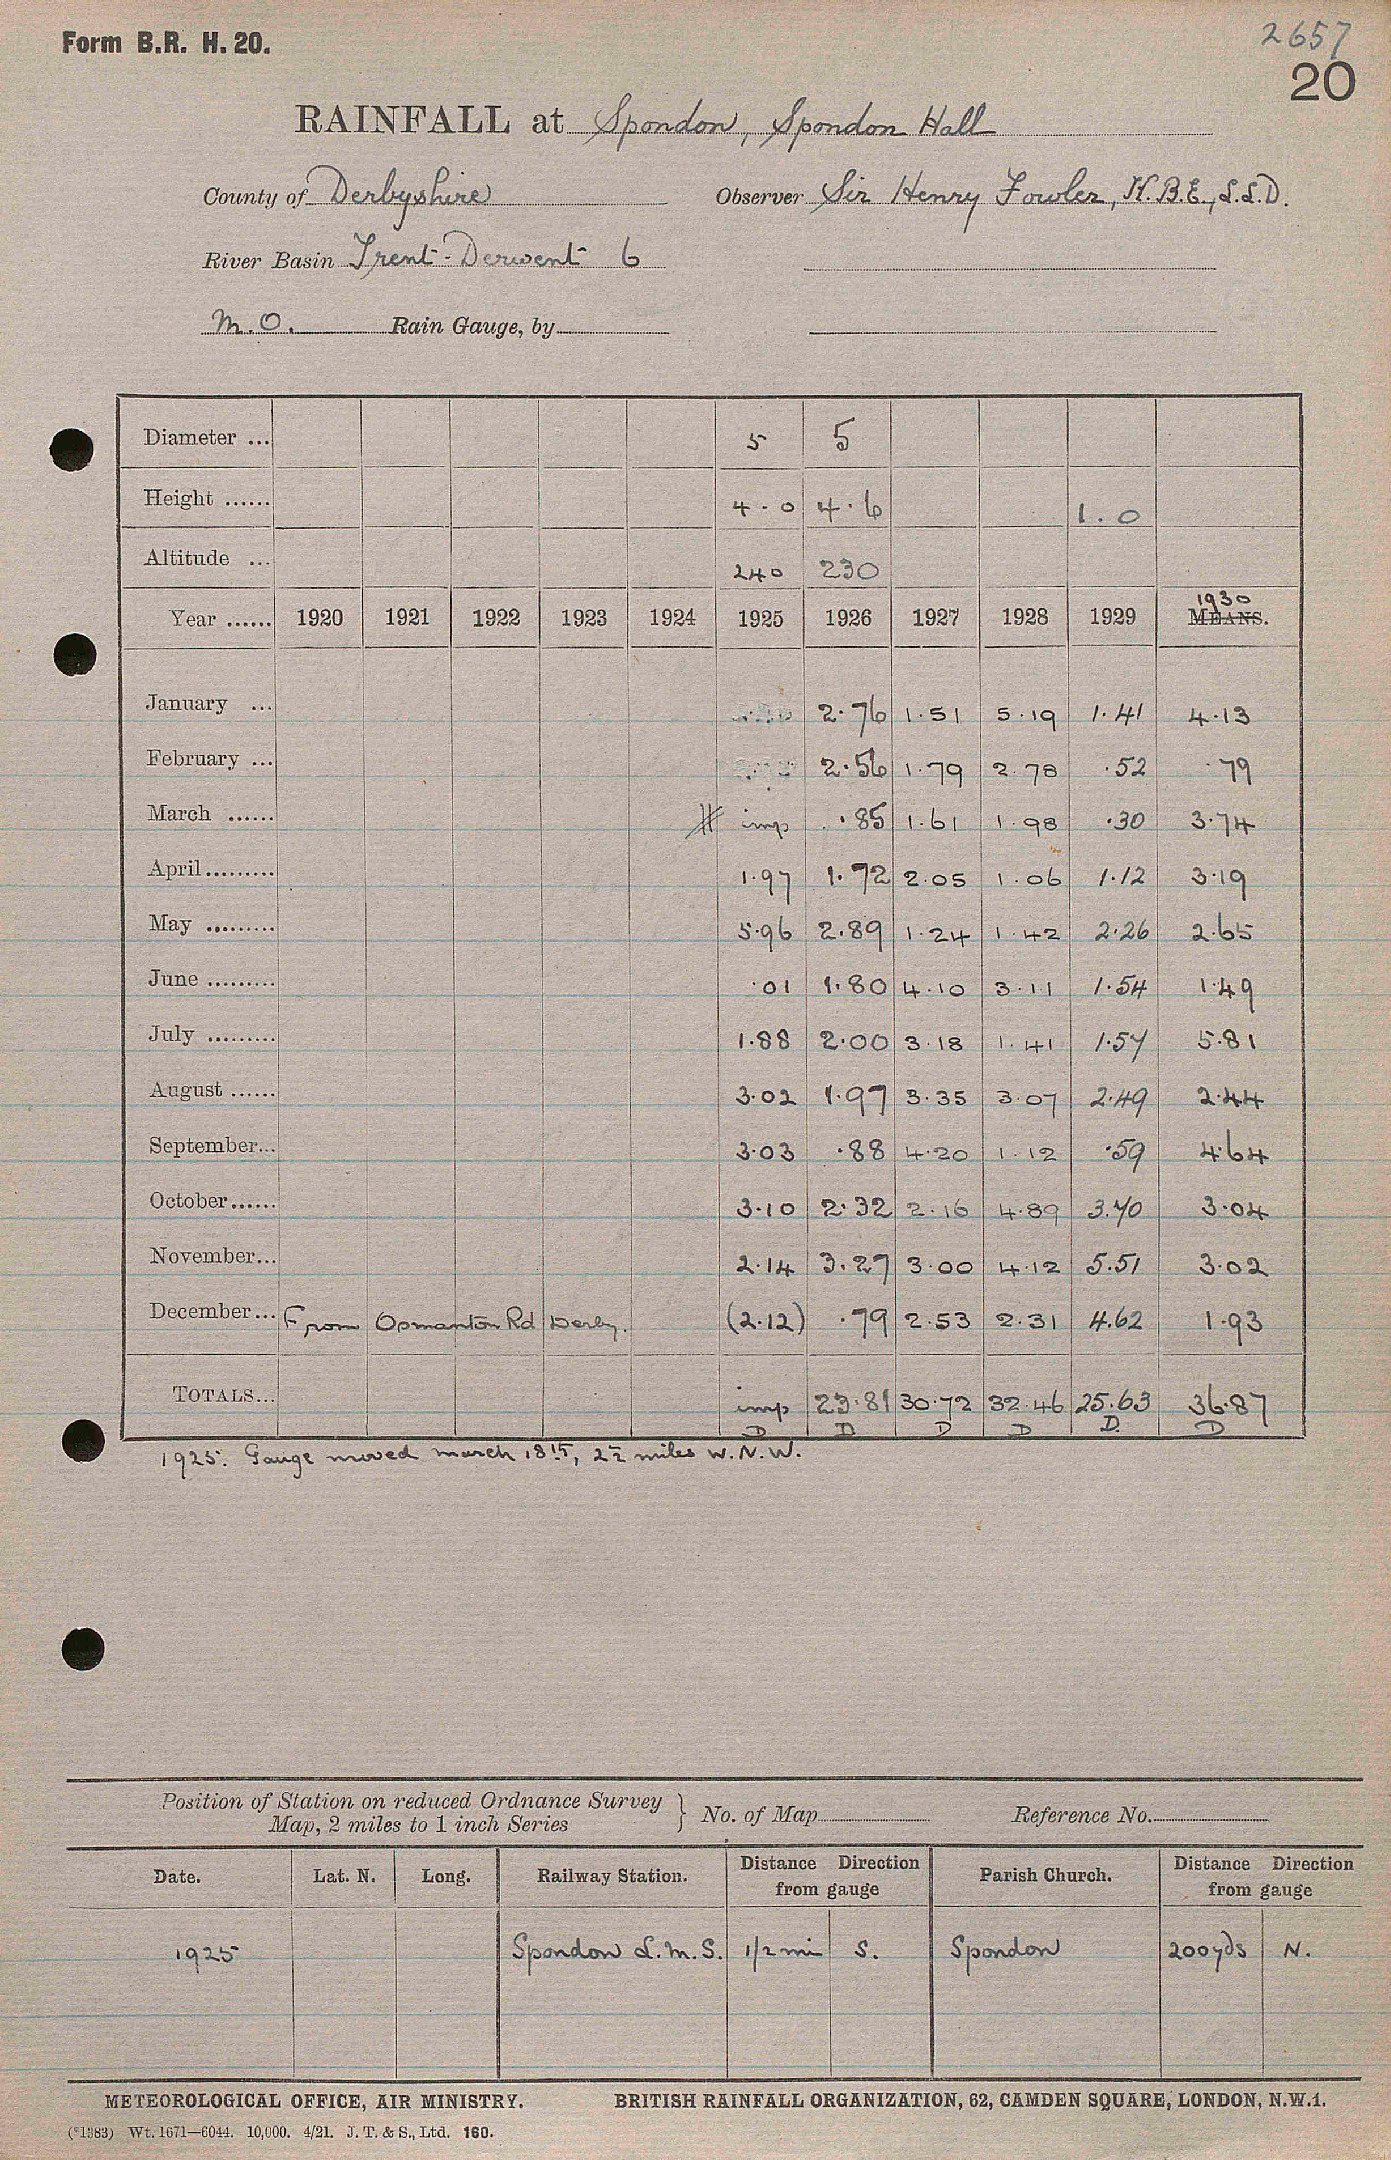 Form B.R. H. 20.
2657
20
RAINFALL at Spondon, Spondon Hall
County of Derbyshire Observer Sir Henry Fowler, K.B.E., L.L.D.
River Basin Trent-Derwent 6
M.O. Rain Gauge, by
Diameter ... 5 5
Height ...... 4.0 4.6 1.0
Altitude ... 240 230
1930
Year ...... 1920 1921 1922 1923 1924 1925 1926 1927 1928 1929 MEANS.
January ... 2.76 1.51 5.19 1.41 4.13
February ... 2.56 1.79 2.78 .52 .79
March ...... imp .85 1.61 1.98 .30 3.74
April ......... 1.97 1.72 2.05 1.06 1.12 3.19
May ......... 5.96 2.89 1.24 1.42 2.26 2.65
June ......... .01 1.80 4.10 3.11 1.54 1.49
July ......... 1.88 2.00 3.18 1.41 1.57 5.81
August ...... 3.02 1.97 3.35 3.07 2.49 2.44
September... 3.03 .88 4.20 1.12 .59 4.64
October...... 3.10 2.32 2.16 4.89 3.70 3.04
November... 2.14 3.27 3.00 4.12 5.51 3.02
December... From Osmanton Rd Derby. (2.12) .79 2.53 2.31 4.62 1.93
TOTALS... imp 23.81 30.72 32.46 25.63 36.87
D D D D D. D
1925. Gauge moved march 18th, 2½ miles W.N.W.
Position of Station on reduced Ordnance Survey
Map, 2 miles to 1 inch Series } No. of Map Reference No.
Date. Lat. N. Long. Railway Station. Distance Direction from gauge Parish Church. Distance Direction from gauge
1925 Spondon L.M.S. 1/2 mi S. Spondon 200yds N.
METEOROLOGICAL OFFICE, AIR MINISTRY. BRITISH RAINFALL ORGANIZATION, 62, CAMDEN SQUARE, LONDON, N.W.1.
(*1383) Wt. 1671—6044. 10,000. 4/21. J. T. & S., Ltd. 160.